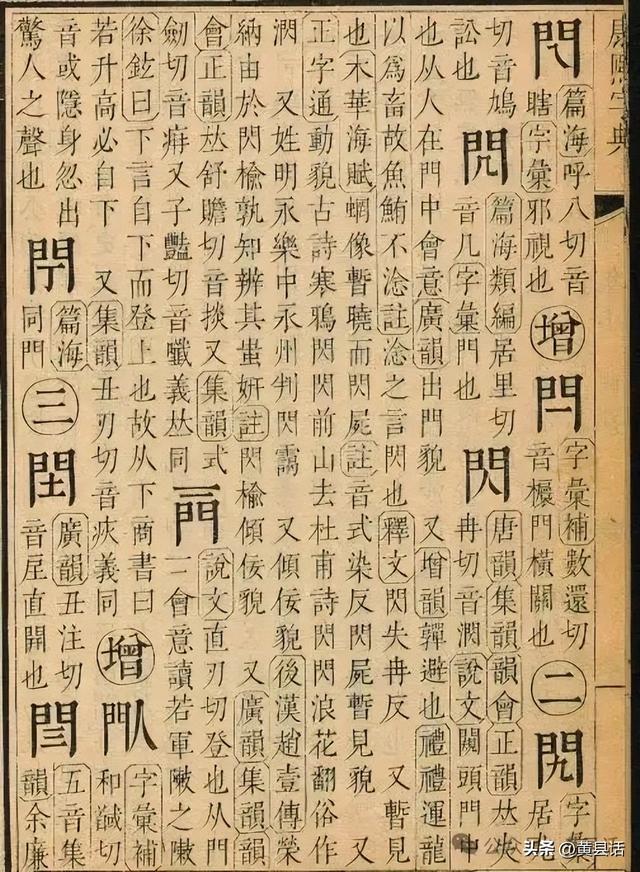 康熙字典
篇海呼八切音
瞎字彙邪視也
增
閂
字彙補數還切
門橫關也
二
字彙居九
切音鳩
訟也
篇海類編居里切
音几字彙門也
閃
唐韻集韻韻會正韻𠀤失
冉切音㴸說文闚頭門中
也从人在門中會意廣韻出門貌 又增韻嚲避也禮禮運龍
以爲畜故魚鮪不淰註淰之言閃也釋文閃失冉反 又暫見
也木華海賦蝄像暫曉而閃屍註音式染反閃屍暫見貌 又
正字通動貌古詩寒鴉閃閃前山去杜甫詩閃閃浪花翻俗作
㴸 又姓明永樂中永州判閃靄 又傾佞貌後漢趙壹傳榮
納由於閃榆孰知辨其蚩妍註閃榆傾佞貌 又廣韻集韻韻
會正韻𠀤舒贍切音掞又集韻式
劒切音痽又子豔切音殲義𠀤同
說文直刃切登也从門
二會意讀若軍敶之敶
徐鉉曰下言自下而登上也故从下商書曰
若升高必自下 又集韻丑刃切音疢義同
增
字彙補
和諴切
音或隱身忽出
驚人之聲也
篇海
同門
三
閏
廣韻丑注切
音厔直開也
閆
五音集
韻余廉